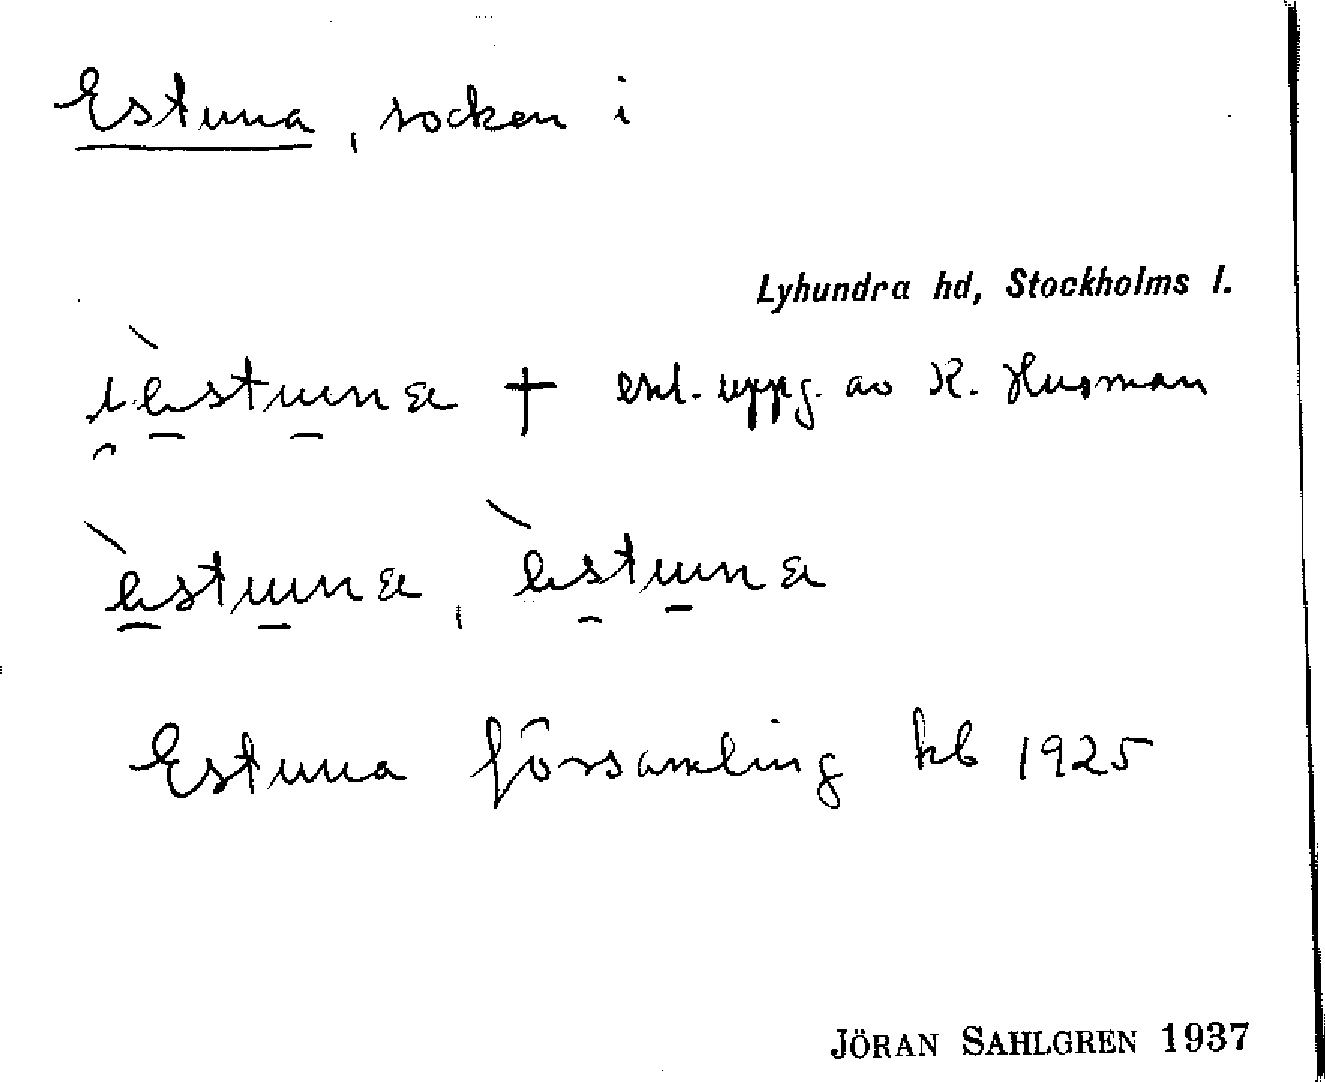 Estuna, socken i
Lyhundra hd, Stockholms l.
† enl. uppg. av K. Husman
Estuna församling kb 1925
JÖRAN SAHLGREN 1937